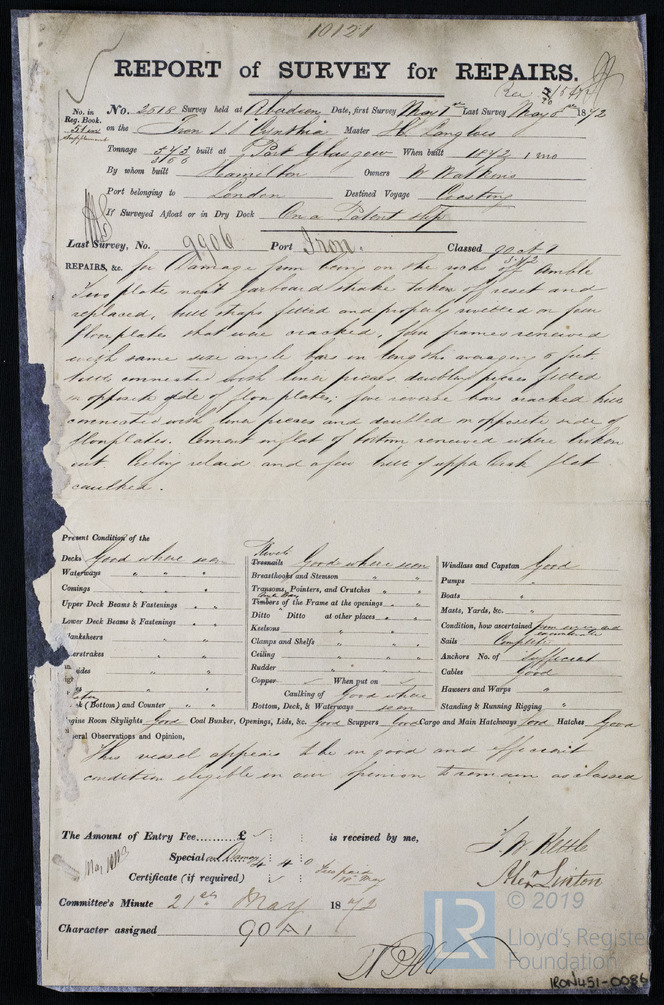 10121
REPORT of SURVEY for REPAIRS.
No. in Reg. Book.
Supplement
No. 2518 Survey held at Aberdeen Date, first Survey May 1st Last Survey May 8th 1872
on the Iron S.S. Cynthia Master H. Langlois
Tonnage 543 built at Port Glasgow When built 1872 1 mo
By whom built Hamilton Owners W Watkins
Port belonging to London Destined Voyage Coasting
If Surveyed Afloat or in Dry Dock On a Patent slip
Last Survey, No. 9906 Port Iron. Classed 90 A 1
REPAIRS, &c. for Damage from being on the rocks off Amble
Two plates next Garboard strake taken off reset and
replaced, butt straps fitted and properly rivetted on four
floorplates that were cracked. four frames renewed
with same size angle bars in lengths averaging 6 feet,
butts connected with liner pieces doubling pieces fitted
on opposite side of floor plates; five reverse bars cracked
connected with liner pieces and doubled on opposite side of
floorplates. Cement in flat of bottom renewed where broken
out Ceiling relaid and a few butts of upper Deck flat
caulked.
Present Condition of the
Decks Good where seen
Waterways " " "
Comings " " "
Upper Deck Beams & Fastenings " "
Lower Deck Beams & Fastenings " "
lanksheers " "
erstrakes " "
sides " "
k (Bottom) and Counter " "
Rivets
Treenails Good where seen
Breasthooks and Stemson " "
Transoms, Pointers, and Crutches " "
Timbers of the Frame at the openings " "
Ditto Ditto at other places " "
Keelsons " "
Clamps and Shelfs " "
Ceiling " "
Rudder " "
Copper When put on
Caulking of Good where
Bottom, Deck, & Waterways seen
Windlass and Capstan Good
Pumps "
Boats "
Masts, Yards, &c. "
Condition, how ascertained
Sails Complete
Anchors No. of Sufficient
Cables Good
Hawsers and Warps "
Standing & Running Rigging "
gine Room Skylights Good Coal Bunker, Openings, Lids, &c. Good Scuppers Good Cargo and Main Hatchways Good Hatches Good
eral Observations and Opinion,
This vessel appears to be in good and efficient
condition eligible in our opinion to remain as classed
The Amount of Entry Fee.......... £ : : is received by me,
Special Damage 4 : 4 : 0
Certificate (if required) : :
J. W. Kettle
Alexr Linton
Committee's Minute 21st May 1872
Character assigned 90 A 1
LR
© 2019
Lloyd's Register
Foundation
IRON451-0086